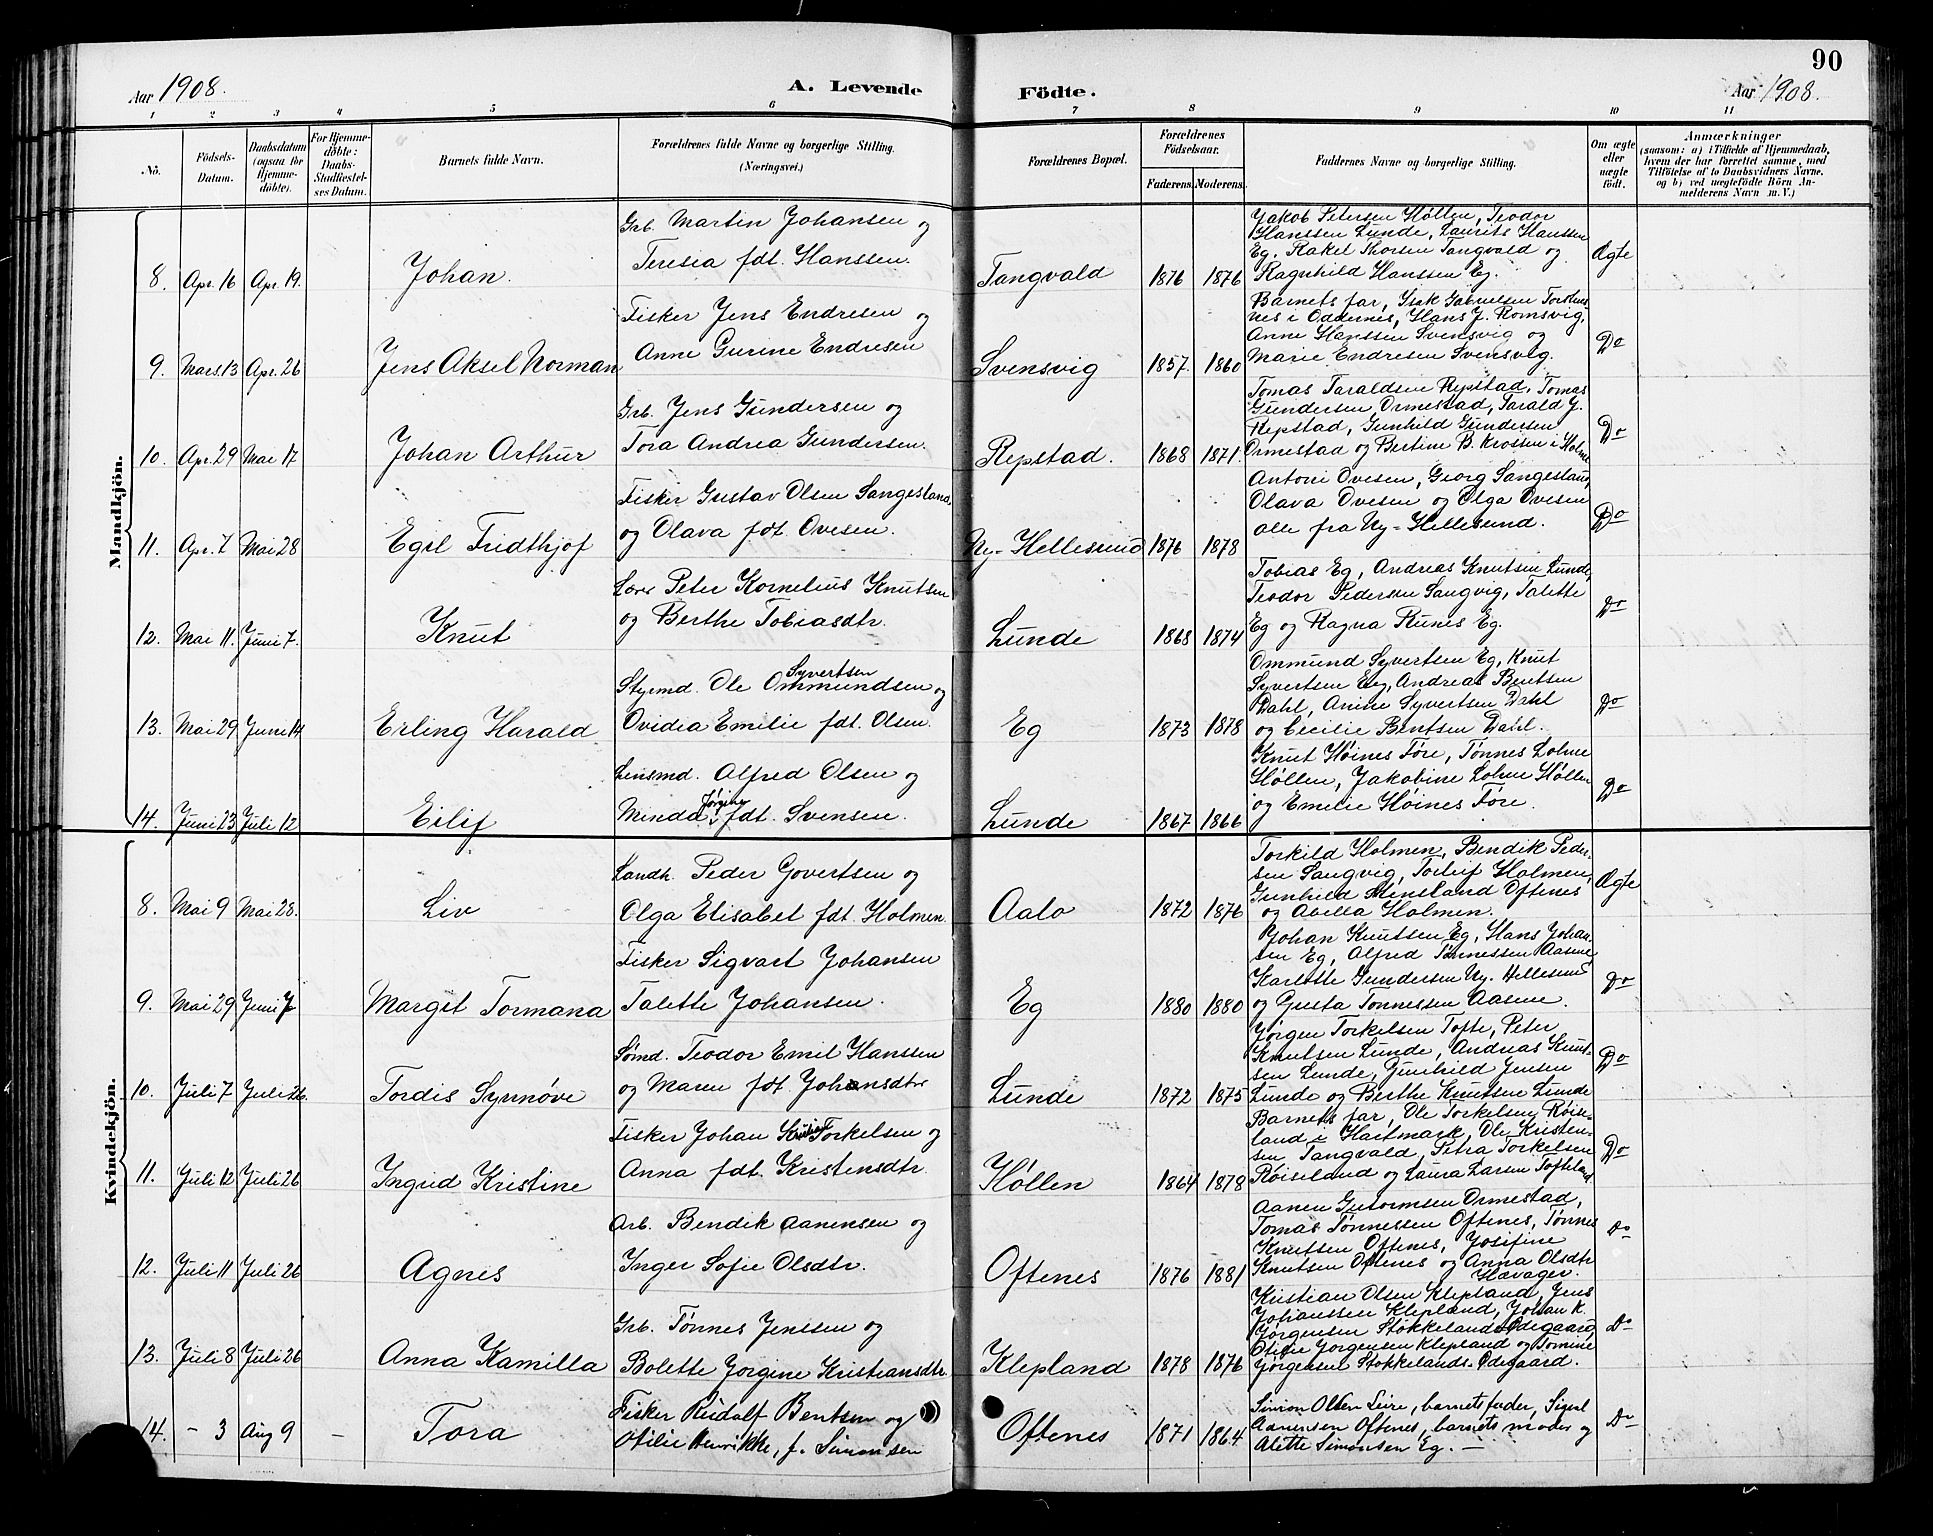 90
Aar 1908. A. Levende Födte. Aar 1908.
1 2 3 4 5 6 7 8 9 10 11
No. Födsels-Datum. Daabsdatum (ogsaa for Hjemmedöbte). For Hjemmedöbte: Daabs-Stadfæstelses Datum. Barnets fulde Navn. Forældrenes fulde Navne og borgerlige Stilling. (Næringsvei.) Forældrenes Bopæl. Forældrenes Födselsaar. Faderens. Moderens. Faddernes Navne og borgerlige Stilling. Om ægte eller uægte födt. Anmærkninger (saasom: a) i Tilfælde af Hjemmedaab, hvem der har forrettet samme, med Tilföielse af to Daabsvidners Navne, og b) ved uægtefödte Börn Anmelderens Navn m. V.)
Mandkjön.
8. Apr. 16 Apr. 19. Johan. Grb. Martin Johansen og
Teresia fdt. Hanssen. Tangvald 1876 1876 Jakob Petersen Høllen, Teodor
Hanssen Lunde, Laurits Hanssen
Eg, Rakel Thorsen Tangvald og
Ragnhild Hanssen Eg. Ægte
9. Mars. 13 Apr. 26 Jens Aksel Norman Fisker Jens Endresen og
Anne Gurine Endresen Svensvig 1857. 1860 Barnets far, Isak Gabrielsen
nes i Oddernes, Hans J. Romsvig,
Anne Hanssen Svensvig og
Marie Endresen Svensvig. Do
10. Apr. 29 Mai 17 Johan Arthur Grb. Jens Gundersen og
Tora Andrea Gundersen. Repstad. 1868 1871. Tomas Taraldsen Repstad, Tomas
Gundersen Ormestad, Tarald J.
Repstad, Gunhild Gundersen
Ormestad og Bertine B. Krossen i Holme Do
11. Apr. 7 Mai 28 Egil Fridthjof Fisker Gustav Olsen Sangesland
og Olava fdt. Ovesen. Ny-Hellesund 1876 1878 Antoni Ovesen, Georg Sangesland,
Olava Ovesen og Olga Ovesen
alle fra Ny-Hellesund. Do
12. Mai 11. Juni 7. Knut Lærer Peter Kornelius Knutsen
og Berthe Tobiasdtr. Lunde 1868 1874 Tobias Eg, Andreas Knutsen Lunde,
Teodor Pedersen Sangvig, Talette
Eg og Ragna Runes Eg. Do
13. Mai 29 Juni 14 Erling Harald Styrmd. Ole Syvertsen Ommundsen og
Ovidia Emilie fdt. Olsen. Eg 1873 1878 Ommund Syvertsen Eg, Knut
Syvertsen Eeg, Andreas Bentsen
Dahl, Anine Syvertsen Dahl
og Cecilie Bentsen Dahl. Do
14. Juni 23 Juli 12 Eilif Lensmd. Alfred Olsen og
Minda Jørgine fdt. Svensen. Lunde 1867 1866 Knut Høines Føre, Tønnes Lohne
Høllen, Jakobine Lohne Høllen
og Emelie Høines Føre. Do
Kvindekjön.
8. Mai 9 Mai 28. Liv Landh. Peder Govertsen og
Olga Elisabet fdt. Holmen. Aalo 1872 1876 Torkild Holmen, Bendik Peder-
sen Sangvig, Torleif Holmen,
Gunhild Stensland Oftenes
og Abella Holmen. Ægte
9. Mai 29 Juni 7 Margit Tormana Fisker Sigvart Johansen
Talette Johansen. Eg 1880 1880 Johan Knutsen Eg, Hans Johan-
sen Eg, Alfred Tønnessen Aasene,
Karlotte Gundersen Ny. Hellesund
og Gusta Tønnessen Aasene. Do
10. Juli 7 Juli 26. Tordis Synnøve Sømd. Teodor Emil Hanssen
og Maren fdt. Johansdtr Lunde 1872 1875 Jørgen Torkelsen Tofte, Peter
Knutsen Lunde, Andreas Knut-
sen Lunde, Gunhild Jensen
Lunde og Berthe Knutsen Lunde Do
11. Juli 12 Juli 26 Ingrid Kristine Fisker Johan Torkelsen og
Anna fdt. Kristensdtr. Høllen 1864 1878 Barnets far, Ole Torkelsen Røise-
land i Hartmark, Ole Kristen-
sen Tangvald, Petra Torkelsen
Røiseland og Laura Larsen Tofteland Do
12. Juli 11 Juli 26 Agnes Arb. Bendik Aanensen og
Inger Sofie Olsdtr. Oftenes 1876 1881 Aanen Gutormsen Ormestad,
Tomas Tønnessen Oftenes, Tønnes
Knutsen Oftenes, Josefine
Knutsen Oftenes og Anna Olsdtr
Høvager. Do
13. Juli 8 Juli 26 Anna Kamilla Grb. Tønnes Jenssen og
Bolette Jørgine Kristiansdtr. Klepland 1878 1876 Kristian Olsen Klepland, Jens
Johanssen Klepland, Johan K.
Jørgensen Stokkelands Ødegaard,
Jørgensen Klepland og Tomine
Jørgensen Stokkelands-Ødegaard. Do
14. - 3 Aug 9 - Tora Fisker Rudolf Bentsen og
Otilie Henrikke, f. Simonsen Oftenes 1871 1864 Simon Olsen Leire, barnets fader, Sigrid
Aanensen Oftenes, barnets moder og
Alette Simonsen Eg. - Do